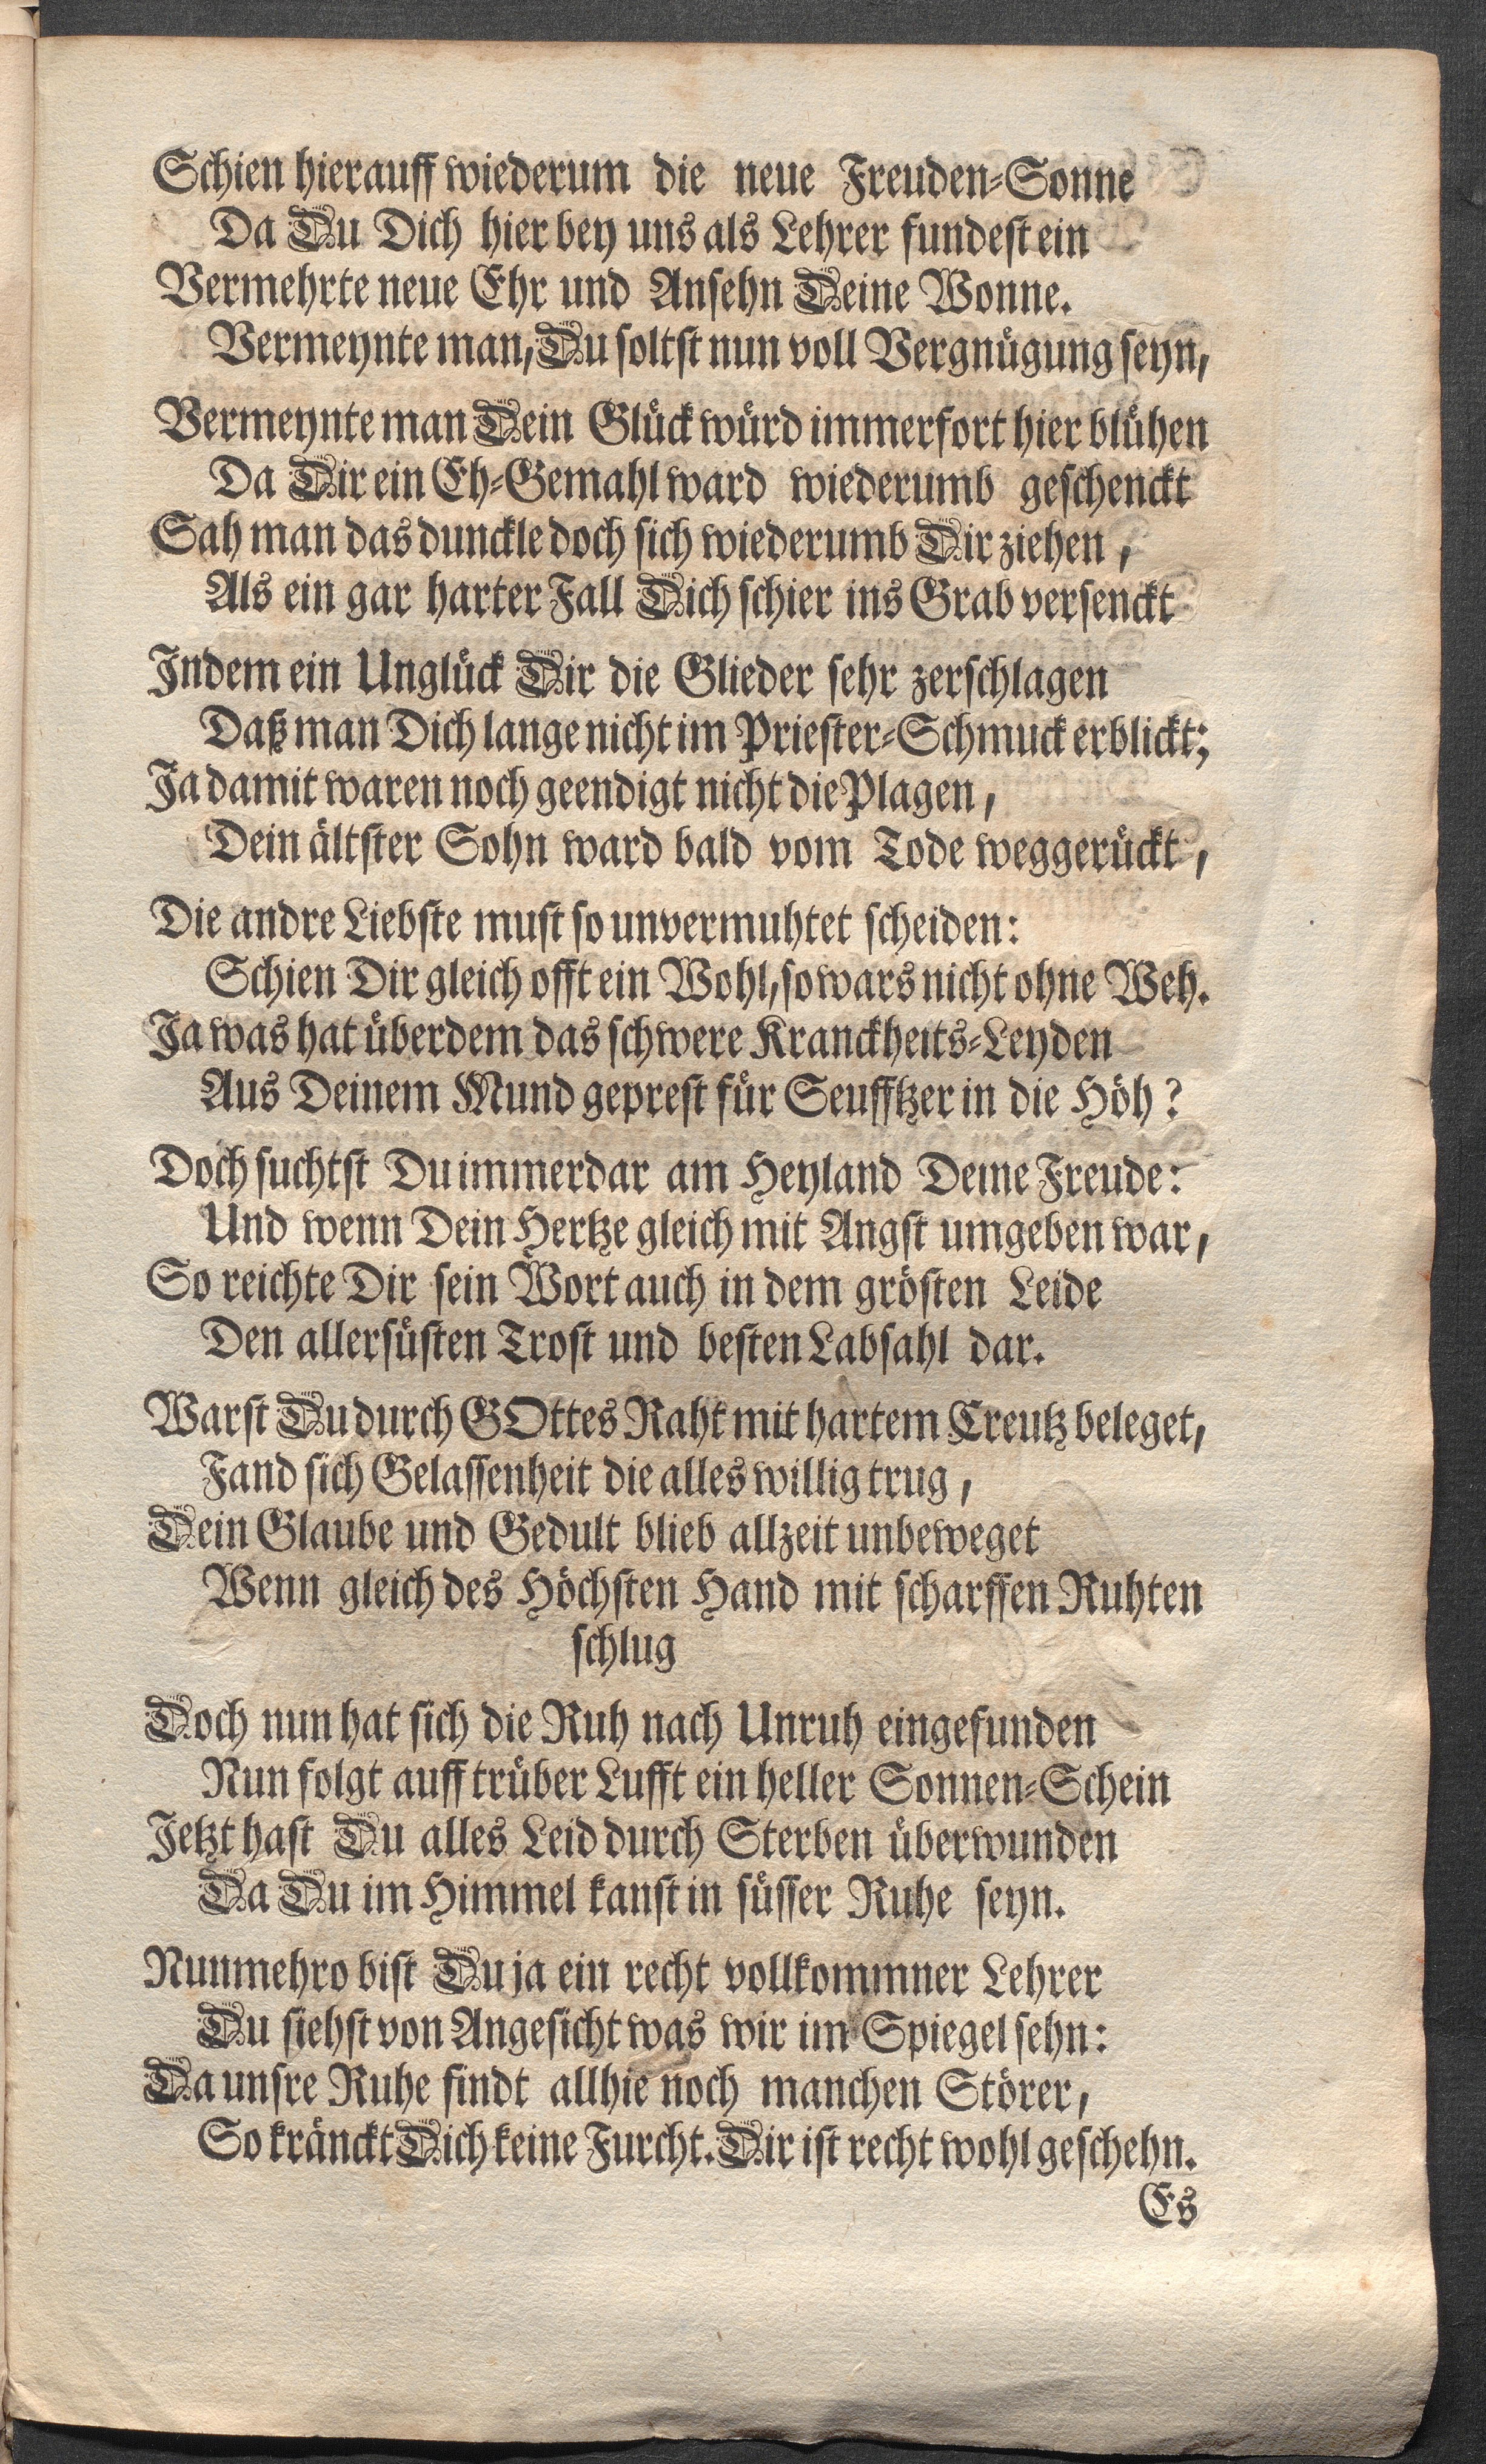 Schien hierauff wiederum die neue Freuden-Sonne
Da Du Dich hier bey uns als Lehrer fundest ein
Vermehrte neue Ehr und Ansehn Deine Wonne.
Vermeynte man, Du soltst nun voll Vergnügung seyn,
Vermeynte man Dein Glück würd immerfort hier blühen
Da Dir ein Eh-Gemahl ward wiederumb geschenckt
Sah man das dunckle doch sich wiederumb Dir ziehen,
Als ein gar harter Fall Dich schier ins Grab versenckt
Indem ein Unglück Dir die Glieder sehr zerschlagen
Daß man Dich lange nicht im Priester-Schmuck erblickt;
Ja damit waren noch geendigt nicht die Plagen,
Dein ältster Sohn ward bald vom Tode weggerückt,
Die andre Liebste must so unvermuhtet scheiden:
Schien Dir gleich offt ein Wohl, so wars nicht ohne Weh.
Ja was hat überdem das schwere Kranckheits-Leyden
Aus Deinem Mund geprest für Seufftzer in die Höh?
Doch suchtst Du immerdar am Heyland Deine Freude:
Und wenn Dein Hertze gleich mit Angst umgeben war,
So reichte Dir sein Wort auch in dem grösten Leide
Den allersüsten Trost und besten Labsahl dar.
Warst Du durch GOttes Raht mit hartem Creutz beleget,
Fand sich Gelassenheit die alles willig trug,
Dein Glaube und Gedult blieb allzeit unbeweget
Wenn gleich des Höchsten Hand mit scharffen Ruhten
schlug
Doch nun hat sich die Ruh nach Unruh eingefunden
Nun folgt auff trüber Lufft ein heller Sonnen-Schein
Jetzt hast Du alles Leid durch Sterben überwunden
Da Du im Himmel kanst in süsser Ruhe seyn.
Nunmehro bist Du ja ein recht vollkommner Lehrer
Du siehst von Angesicht was wir im Spiegel sehn:
Da unsre Ruhe findt allhie noch manchen Störer,
So kränckt Dich keine Furcht. Dir ist recht wohl geschehn.
Es